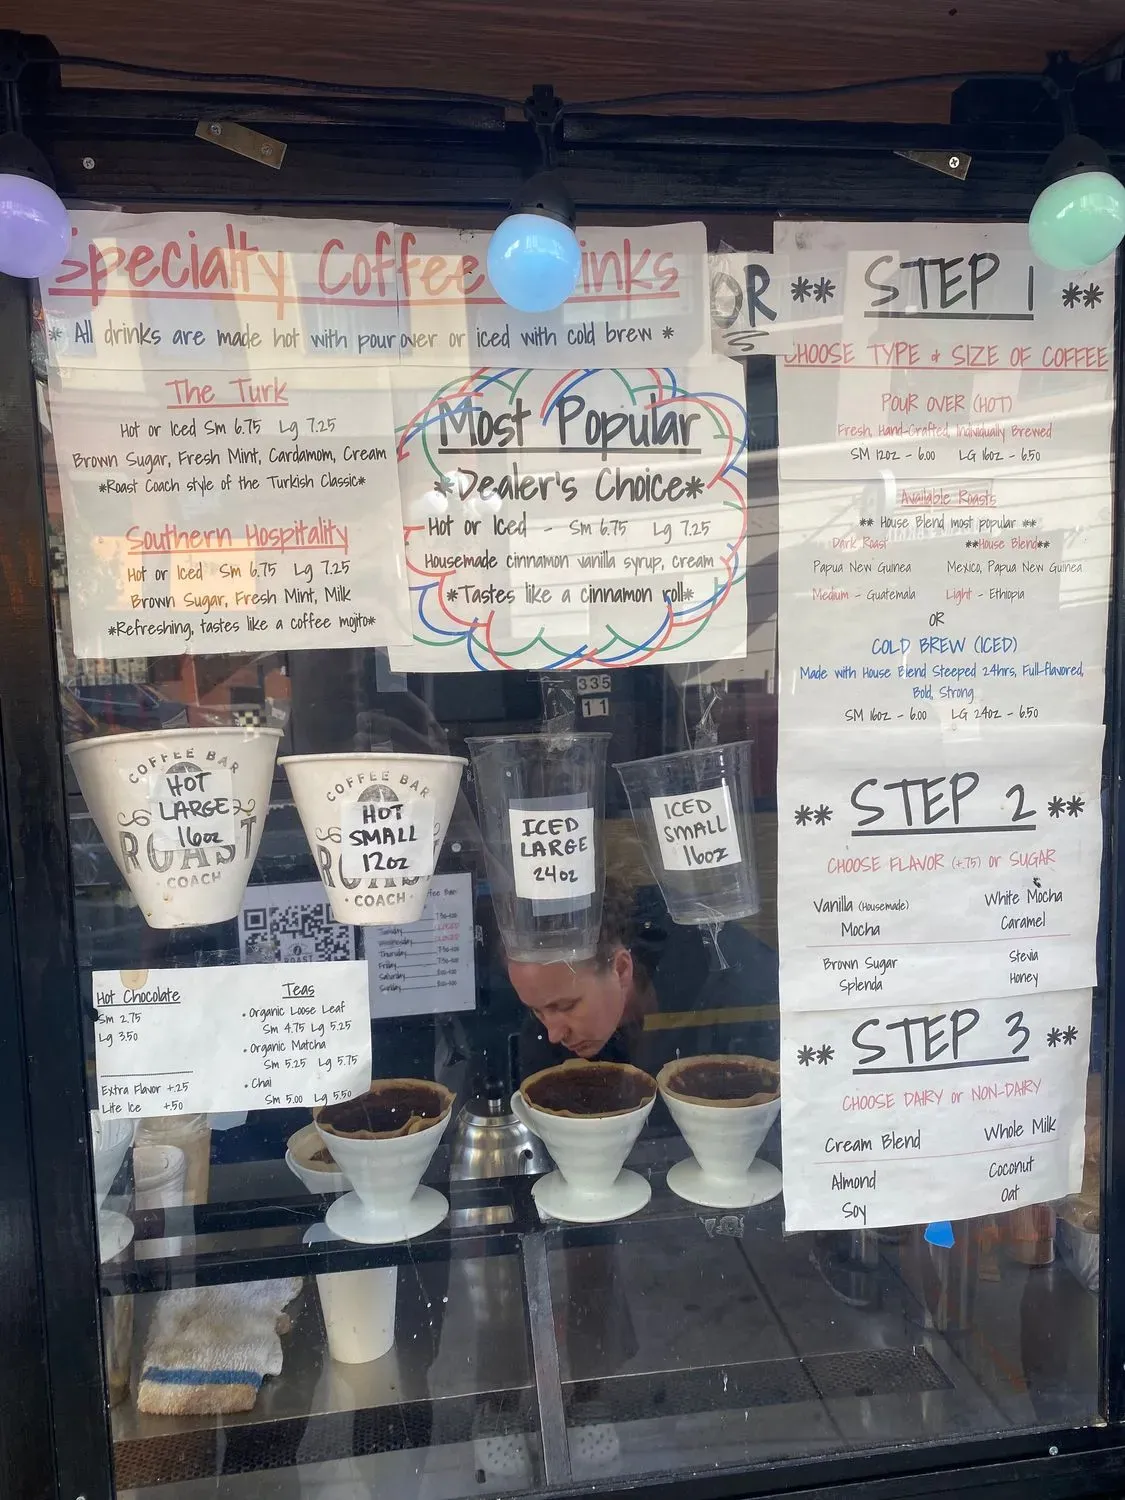 Specialty Coffee inks
* All drinks are made hot with pour over or iced with cold brew *
The Turk
Hot or Iced Sm 6.75 Lg 7.25
Brown Sugar, Fresh Mint, Cardamom, Cream
*Roast Coach style of the Turkish Classic*
Southern Hospitality
Hot or Iced Sm 6.75 Lg 7.25
Brown Sugar, Fresh Mint, Milk
*Refreshing, tastes like a coffee mojito*
Most Popular
*Dealer's Choice*
Hot or Iced - Sm 6.75 Lg 7.25
Housemade cinnamon vanilla syrup, cream
*Tastes like a cinnamon roll*
OR
** STEP 1 **
CHOOSE TYPE & SIZE OF COFFEE
POUR OVER (HOT)
Fresh, Hand-Crafted, Individually Brewed
SM 12oz - 6.00 LG 16oz - 6.50
Available Roasts
** House Blend most popular **
Dark Roast **House Blend**
Papua New Guinea Mexico, Papua New Guinea
Medium - Guatemala Light - Ethiopia
OR
COLD BREW (ICED)
Made with House Blend Steeped 24hrs, Full-flavored,
Bold, Strong
SM 16oz - 6.00 LG 24oz - 6.50
** STEP 2 **
CHOOSE FLAVOR (+.75) or SUGAR
Vanilla (Housemade) White Mocha
Mocha Caramel
Brown Sugar Stevia
Splenda Honey
** STEP 3 **
CHOOSE DAIRY or NON-DAIRY
Cream Blend Whole Milk
Almond Coconut
Soy Oat
335
11
COFFEE BAR
HOT
LARGE
16oz
ROAST
COACH
COFFEE BAR
HOT
SMALL
12oz
COACH
ICED
LARGE
24oz
ICED
SMALL
16oz
ROAST
Tuesday
Wednesday
Thursday
Friday
Saturday
Sunday
Hot Chocolate
Sm 2.75
Lg 3.50
Extra Flavor +.25
Lite Ice +.50
Teas
• Organic Loose Leaf
Sm 4.75 Lg 5.25
• Organic Matcha
Sm 5.25 Lg 5.75
• Chai
Sm 5.00 Lg 5.50